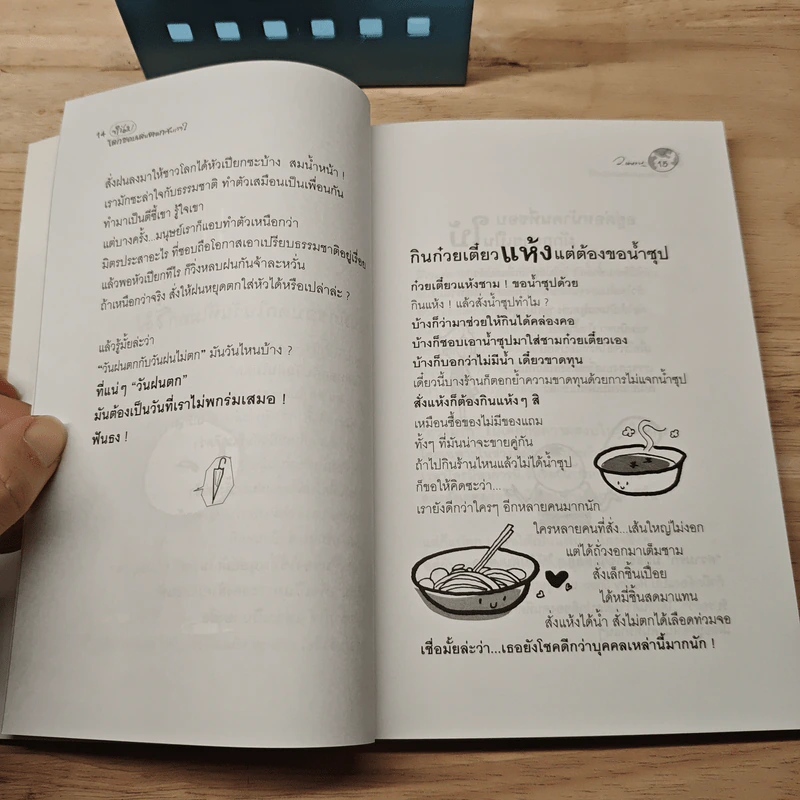 14
สั่งฝนลงมาให้ชาวโลกได้หัวเปียกซะบ้าง สมน้ำหน้า !
เรามักชะล่าใจกับธรรมชาติ ทำตัวเสมือนเป็นเพื่อนกัน
ทำมาเป็นตีซี้เขา รู้ใจเขา
แต่บางครั้ง...มนุษย์เราก็แอบทำตัวเหนือกว่า
มิตรประสาอะไร ที่ชอบถือโอกาสเอาเปรียบธรรมชาติอยู่เรื่อย
แล้วพอหัวเปียกทีไร ก็วิ่งหลบฝนกันจ้าละหวั่น
ถ้าเหนือกว่าจริง สั่งให้ฝนหยุดตกใส่หัวได้หรือเปล่าล่ะ ?
แล้วรู้มั้ยล่ะว่า
“วันฝนตกกับวันฝนไม่ตก” มันวันไหนบ้าง ?
ที่แน่ๆ “วันฝนตก”
มันต้องเป็นวันที่เราไม่พกร่มเสมอ !
ฟันธง !
15
กินก๋วยเตี๋ยวแห้งแต่ต้องขอน้ำซุป
ก๋วยเตี๋ยวแห้งชาม ! ขอน้ำซุปด้วย
กินแห้ง ! แล้วสั่งน้ำซุปทำไม ?
บ้างก็ว่ามาช่วยให้กินได้คล่องคอ
บ้างก็ชอบเอาน้ำซุปมาใส่ชามก๋วยเตี๋ยวเอง
บ้างก็บอกว่าไม่มีน้ำ เดี๋ยวขาดทุน
เดี๋ยวนี้บางร้านก็ตอกย้ำความขาดทุนด้วยการไม่แจกน้ำซุป
สั่งแห้งก็ต้องกินแห้งๆ สิ
เหมือนซื้อของไม่มีของแถม
ทั้งๆ ที่มันน่าจะขายคู่กัน
ถ้าไปกินร้านไหนแล้วไม่ได้น้ำซุป
ก็ขอให้คิดซะว่า...
เรายังดีกว่าใครๆ อีกหลายคนมากนัก
ใครหลายคนที่สั่ง...เส้นใหญ่ไม่งอก
แต่ได้ถั่วงอกมาเต็มชาม
สั่งเล็กชิ้นเปื่อย
ได้หมี่ชิ้นสดมาแทน
สั่งแห้งได้น้ำ สั่งไม่ตกได้เลือดท่วมจอ
เชื่อมั้ยล่ะว่า...เธอยังโชคดีกว่าบุคคลเหล่านี้มากนัก !